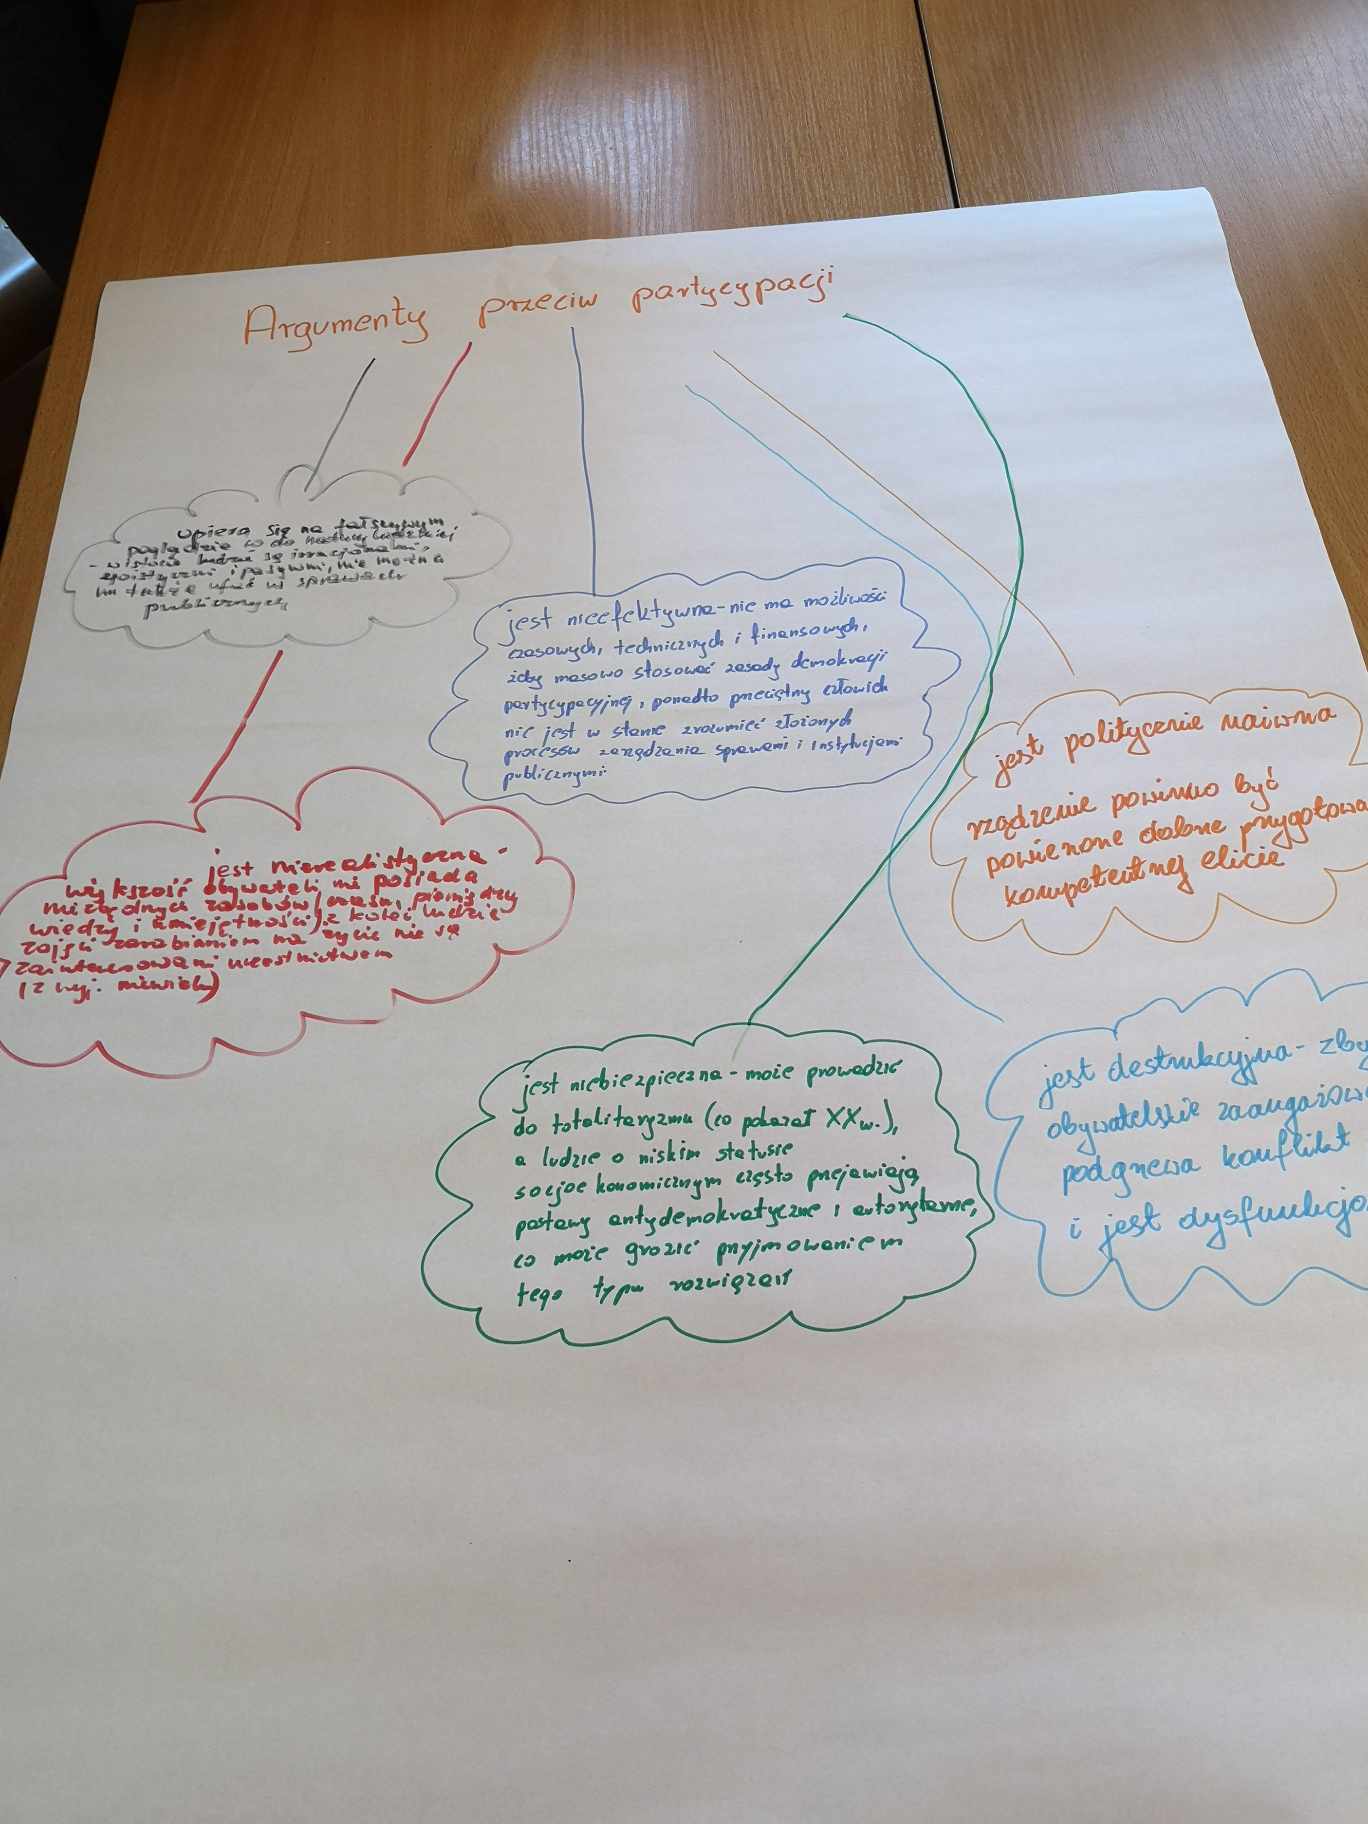 Argumenty przeciw partycypacji
opiera się na fałszywym
poglądzie co do natury ludzkiej
- w istocie ludzie są irracjonalni,
egoistyczni i pasywni, nie można
im także ufać w sprawach
publicznych
jest nieefektywna - nie ma możliwości
czasowych, technicznych i finansowych,
żeby masowo stosować zasady demokracji
partycypacyjnej, ponadto przeciętny człowiek
nie jest w stanie zrozumieć złożonych
procesów zarządzania sprawami i instytucjami
publicznymi
jest politycznie naiwna
rządzenie powinno być
powierzone dobrze przygotowa
kompetentnej elicie
jest nierealistyczna -
większość obywateli nie posiada
niezbędnych zasobów (czasu, pieniędzy
wiedzy i umiejętności) z kolei ludzie
zajęci zarabianiem na życie nie są
zainteresowani uczestnictwem
(z wyj. niewielu)
jest niebiezpieczna - może prowadzić
do totalitaryzmu (co pokazał XXw.),
a ludzie o niskim statusie
socjoekonomicznym często przejawiają
postawy antydemokratyczne i autorytarne,
co może grozić przyjmowaniem
tego typu rozwiązań
jest destrukcyjna - zby
obywatelskie zaangażowa
podgrzewa konflikt
i jest dysfunkcjo